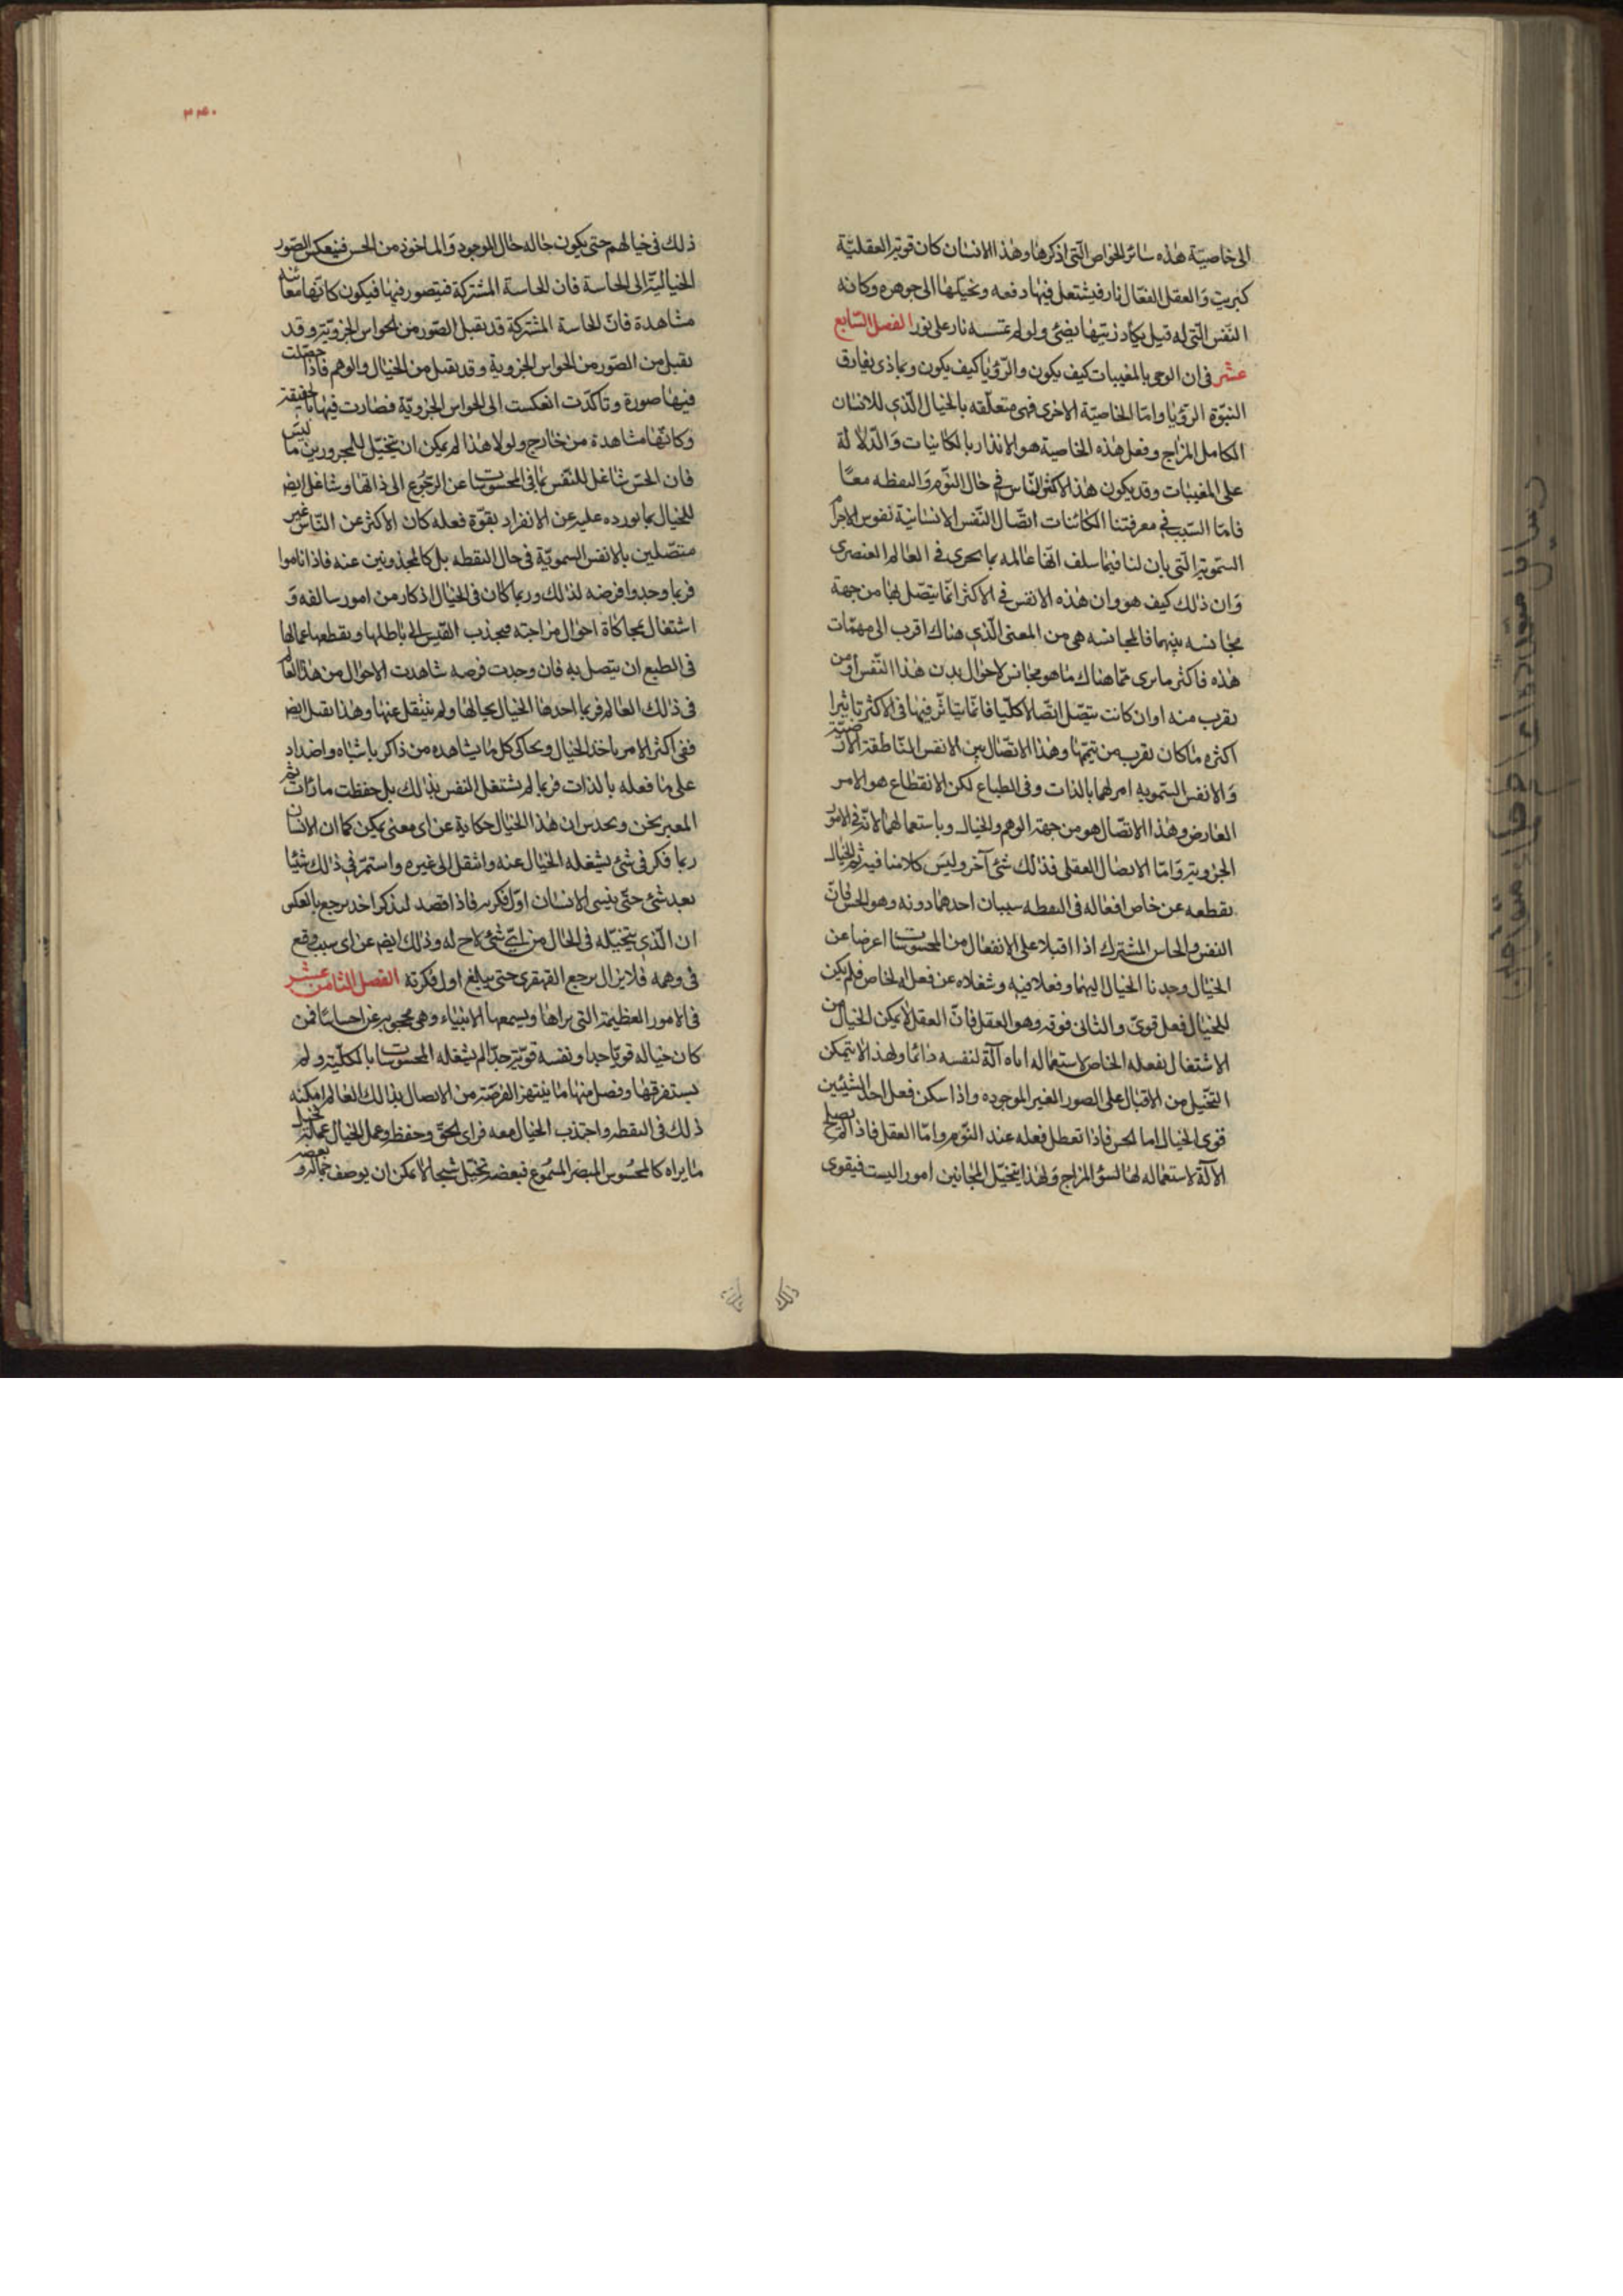 الى خاصيّة هذه سائر الخواص الّتى اذكرها وهذا الانسان كان قوته العقليّة
كبريت وَالعقل الفعّال نار فيشتعل فيها دفعه ونحيلها الى جوهره وكانه
النّفس الّتى له قيل يكاد زيتها يضئ ولو لم تمسسه نار على نور الفصل السّابع
عشر فى ان الوحى بالمغيبات كيف يكون والرّؤيا كيف يكون وبماذى يفارق
النبّوة الرّؤيا وامّا الخاصيّة الاخرى فهى متعلّقه بالخيال الّذى للانسان
الكامل المزاج وفعل هذه الخاصية هو الانذار بالكاينات وَالدّلالة
على المغيبات وقد يكون هذا لاكثر النّاس فى حال النّوم وَاليقظه معًا
فامّا السّبب فى معرفتنا الكائنات اتّصال النّفس الانسانيّة نفوس الاجرام
السّمويّه الّتى بان لنا فيما سلف انّها عالمه بما يجرى فى العالم العنصرى
وَان ذلك كيف هو وان هذه الانفس فى الاكثر انّما يتصّل بها من جهة
مجانسه بينهما فالمجانسه هى من المعنى الّذى هناك اقرب الى مهمّات
هذه فاكثر ما يرى ممّا هناك ما هو مجانس لاحوال بدن هذا النّفس او من
يقرب منه او ان كانت يتصّل اتّصالا كليّا فانّما يتاثّر فيها فى الاكثر تاثيرا
اكثره ما كان يقرب من تيمها وهذا الاتّصال بين الانفس النّاطقة الارضيّة
وَالانفس السّمويه امر لهما بالذات وفى الطباع لكن الانقطاع هو الامر
العارض وهذا الاتّصال هو من جهة الوهم والخيال وباستعمالهما لانّه فى الامور
الجزويّه وَامّا الاتصال العقلى فذلك شئ آخر وليس كلامنا فيه ثم الخيال
يقطعه عن خاص افعاله فى اليقظه سببان احدهما دونه وهو الحس فانّ
النفس والحاس المشترك اذا اقبلا على الانفعال من المحسوسات اعرضا عن
الخيال وجدنا الخيال اليهما وفعلا فيه وشغلاه عن فعله الخاص فلم يكن
للخيال فعل قوىّ والثانى فوقه وهو العقل فانّ العقل لا يمكن الخيال من
الاشتغال بفعله الخاص لاستعماله اياه آلة لنفسه دائما ولهذا لا يتمكن
التخّيل من الاقبال على الصور الغير الموجوده واذا سكن فعل احد الشيئين
قوى الخيال اما الحس فاذا تعطل فعله عند النّوم وامّا العقل فاذا لم يصلح
الآلة لاستعماله لها لسؤ المزاج وَلهذا يتخيّل المجانين امورا ليست فيقوى
٣٤٠
ذلك فى خيالهم حتى يكون حاله حال الموجود وَالماخوذ من الحس فينعكس الصّور
الخياليّة الى الحاسة فان الحاسة المشتركة فيتصور فيها فيكون كانّها معاينه
مشاهدة فانّ الحاسة المشتركة قد يقبل الصّور من الحواس الجزويّه وقد
يقبل من الصّور من الحواس الجزوية وقد يقبل من الخيال والوهم فاذا حصّلت
فيها صورة وتاكدّت انعكست الى الحواس الجزويّة فصارت فيها بالحقيقة
وكانّها مشاهدة من خارج ولولا هذا لم يمكن ان يتخيّل للمجرورين ما ليس
فان الحسّ شاغل للنّفس بما فى المحسوسات عن الرجّوع الى ذاتها وشاغل ايض
للخيال بما نورده عليه عن الانفراد بقوّة فعله كان الاكثر عن النّاس غير
متصّلين بالانفس السمويّة فى حال اليقظه بل كالمجذوبين عنه فاذا ناموا
فربما وجدوا فرضه لذلك وربما كان فى الخيال اذكار من امور سالفه وَ
اشتغال بمحاكاة احوال مزاجته فيجذب القّدس الى باطلها ويقطعها عمالها
فى الطبع ان يتصل به فان وجدت فرصه شاهدت الاحوال من هذا العالم
فى ذلك العالم فربما اخدها الخيال بحالها ولم ينتقل عنها وهذا يقبل ايض
ففى اكثر الامر ياخذ الخيال ويحاكى كل ما يشاهده من ذاكر باشباه واضداد
على ما فعله بالذات فربما لم يشتغل النفس بذالك بل حفظت ما رات ثم
المعبر يخن ويحدس ان هذا الخيال حكاية عن اى معنى يمكن كما ان الانسان
ربما فكر فى شئ يشغله الخيال عنه وانتقل الى غيره واستمرّ فى ذلك شيًا
بعد شئ حتّى ينسى الانسان اوّل فكره فاذا قصد ليذكر اخد يرجع بالعكس
ان الّذى يتخيّله فى الحال من اىّ شئ لاح له وذلك ايضم عن اى سبب وقع
فى وهمه فلا يزال يرجع القهقرى حتى يبلغ اول فكرته الفصل الثامن عشر
فى الامور العظيمة التى يراها ويسمعها الانبياء وهى محجوبه عن احساسنا فمن
كان خياله قويّا جدا ونفسه قويّه جدّا لم يشغله المحسوسات بالكليّة ولم
يستغرقها وفضل منها ما ينتهز الفرصّة من الاتصال بذالك العالم امكنه
ذلك فى اليقظه واجتذب الخيال معه فراى الحقّ وحفظ وعمل الخيال عماله فخيل
ما يراه كالمحسوس المبصر المسّموع فبعضه تخيّل شبحا لا يمكن ان يوصف جماله وبعضه